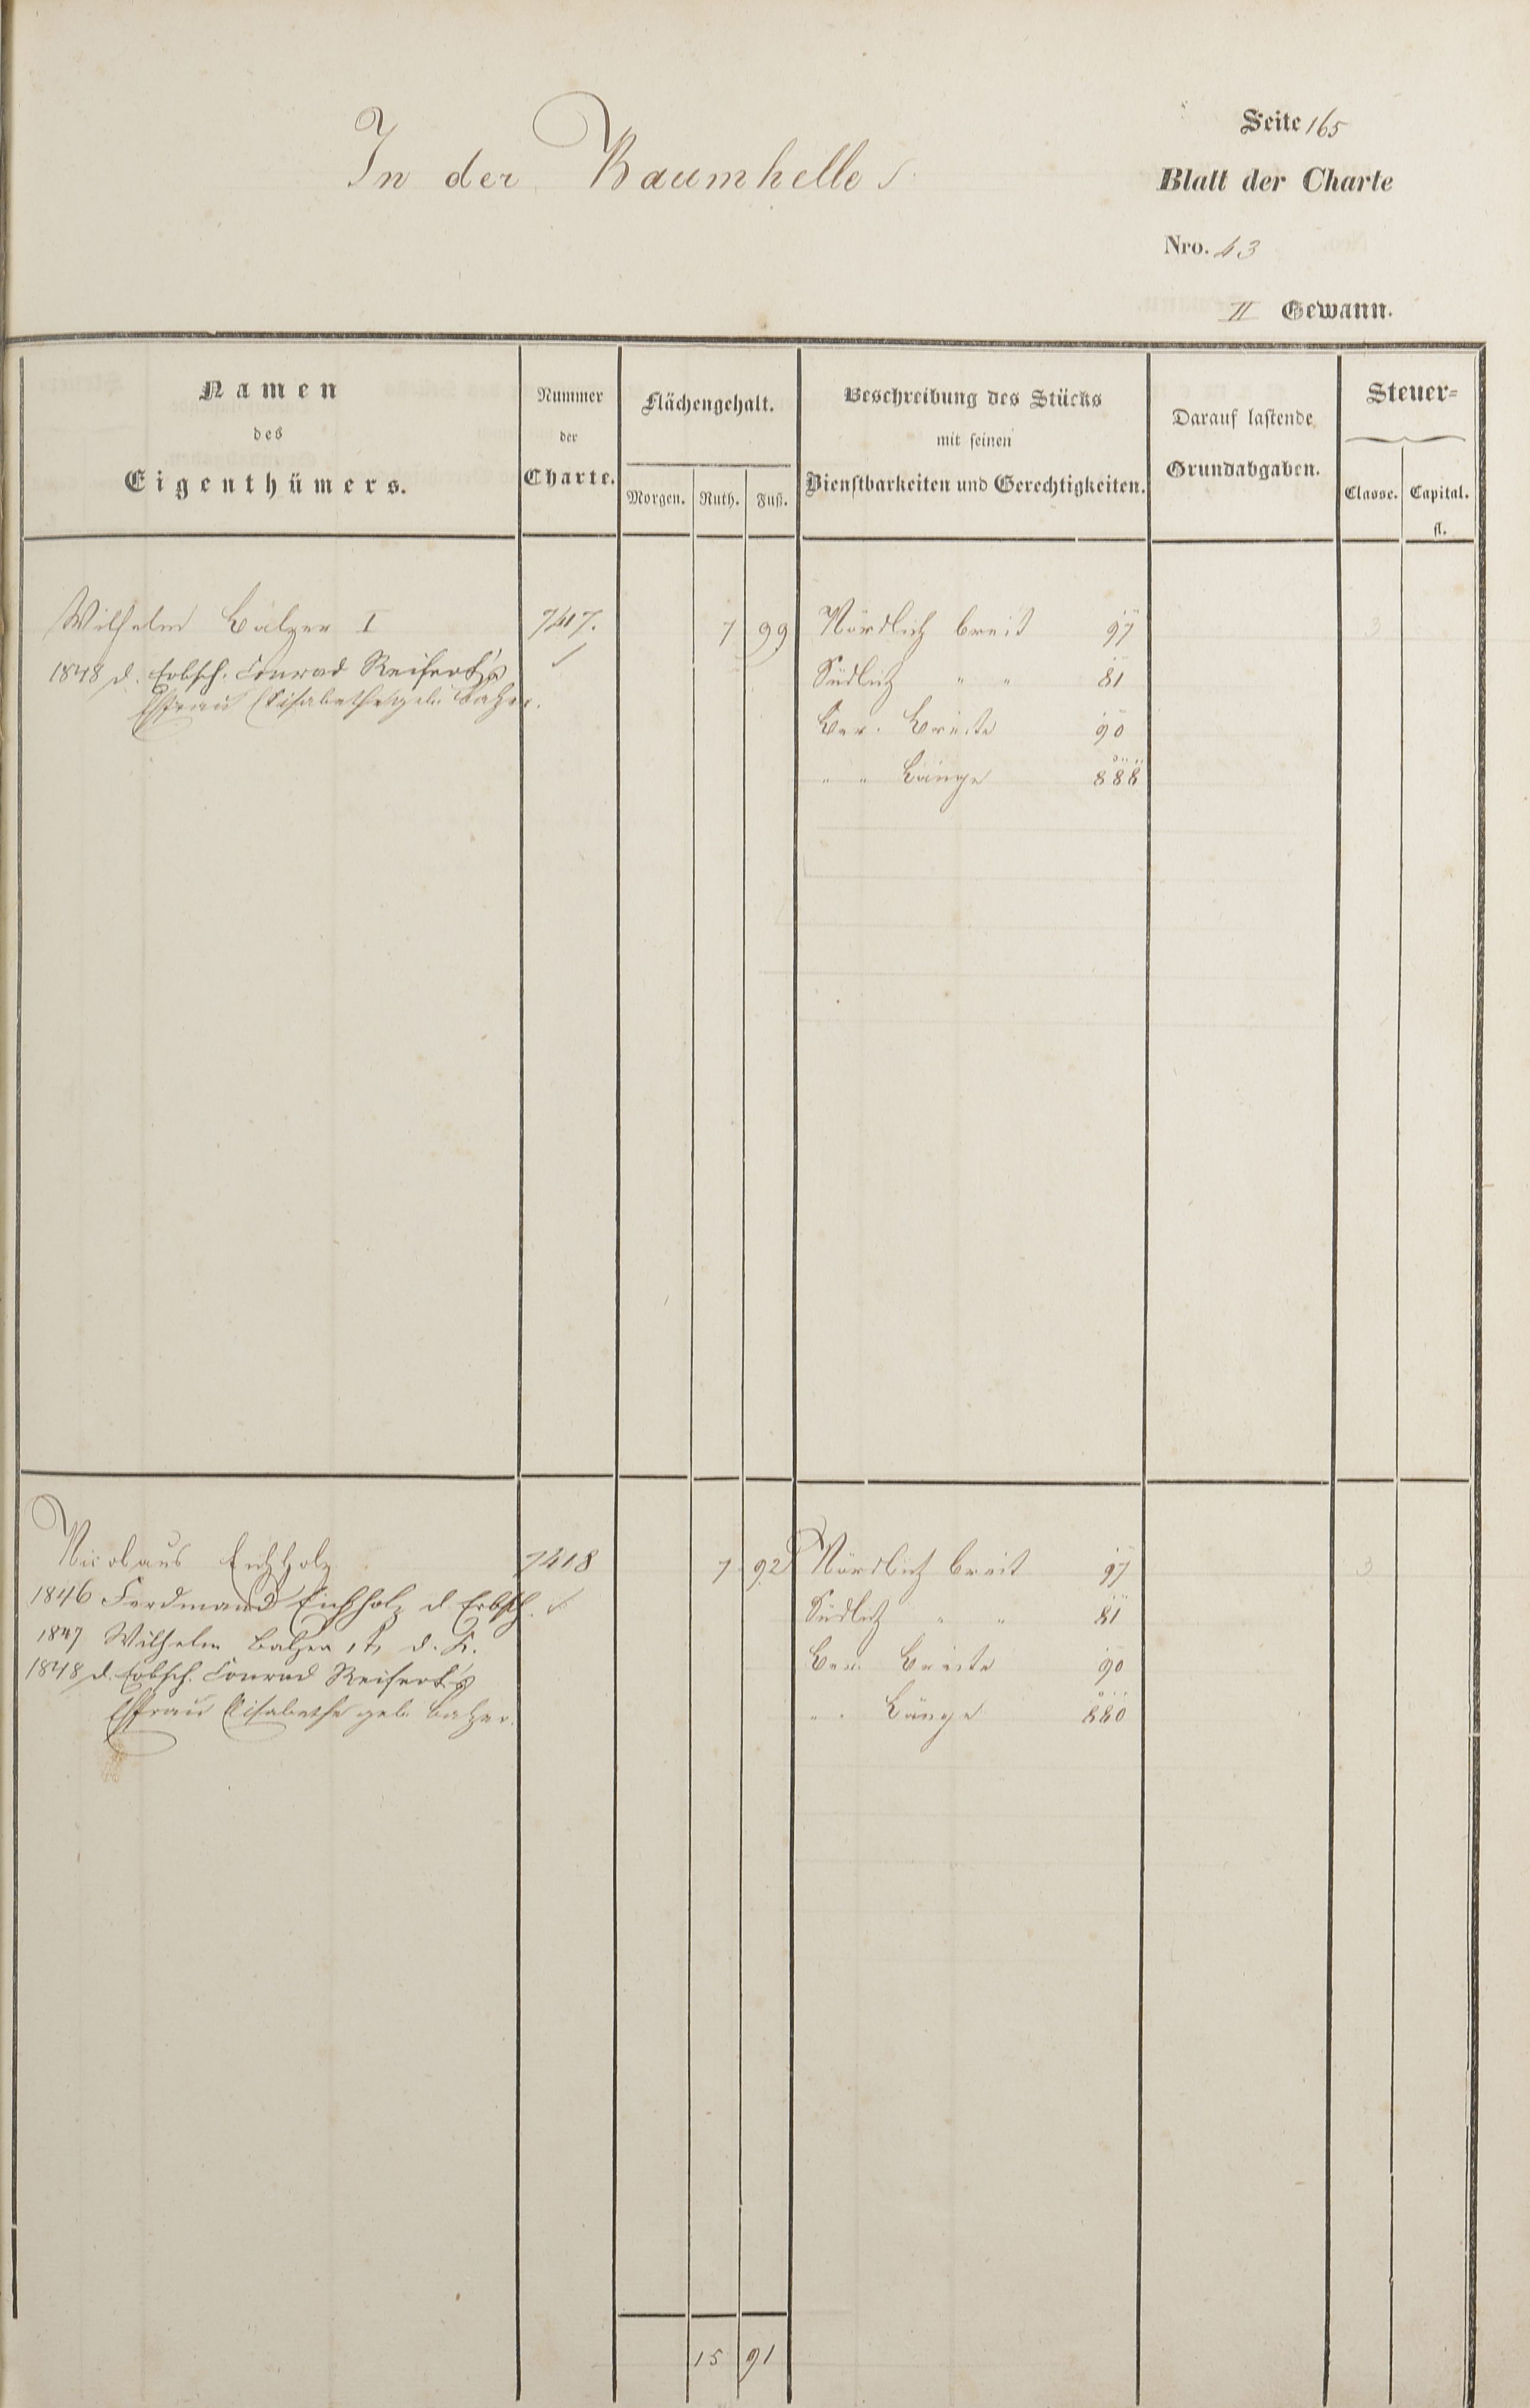 In der Baumhelle
Seite 165
Blatt der Charte
Nro. 43
II Gewann.
Namen
des
Eigenthümers.
Nummer
der
Charte.
Flächengehalt.
Morgen. Ruth. Fuß.
Beschreibung des Stücks
mit seinen
Dienstbarkeiten und Gerechtigkeiten.
Darauf lastende
Grundabgaben.
Steuer-
Classe. Capital.
fl.
Wilhelm Balzer I 7417. 7 99 Nördlich breit 97 3
1848 d. Erbsch. Conrad Reifert's ✓ Südlich " " 81
Ehfrau Elisabethe geb. Balzer. Ber. Breite 90
" " Länge 888
Nicolaus Eichholz 7418 7 92 Nördlich breit 97 3
1846 Ferdinand Eichholz d. Erbsch. ✓ Südlich " " 81
1847 Wilhelm Balzer 1t, d. K. Ber. Breite 90
1848 d. Erbsch. Conrad Reifert's
Ehfrau Elisabethe geb. Balzer. " " Länge 880
15 91